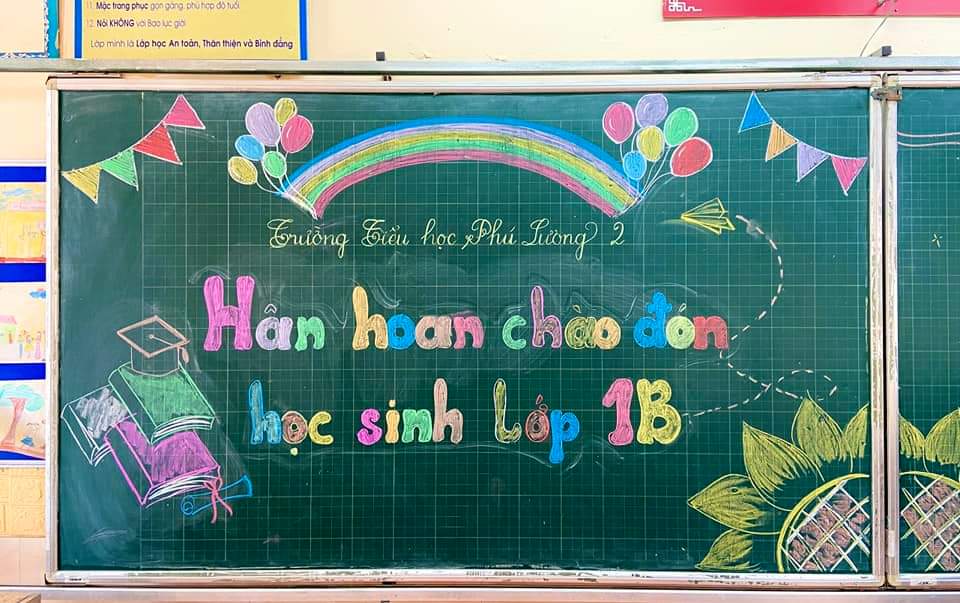 11. Mặc trang phục gọn gàng, phù hợp độ tuổi.
12. Nói KHÔNG với Bạo lực giới
Lớp mình là Lớp học An toàn, Thân thiện và Bình đẳng
Trường Tiểu học Phú Lương 2
Hân hoan chào đón
học sinh Lớp 1B